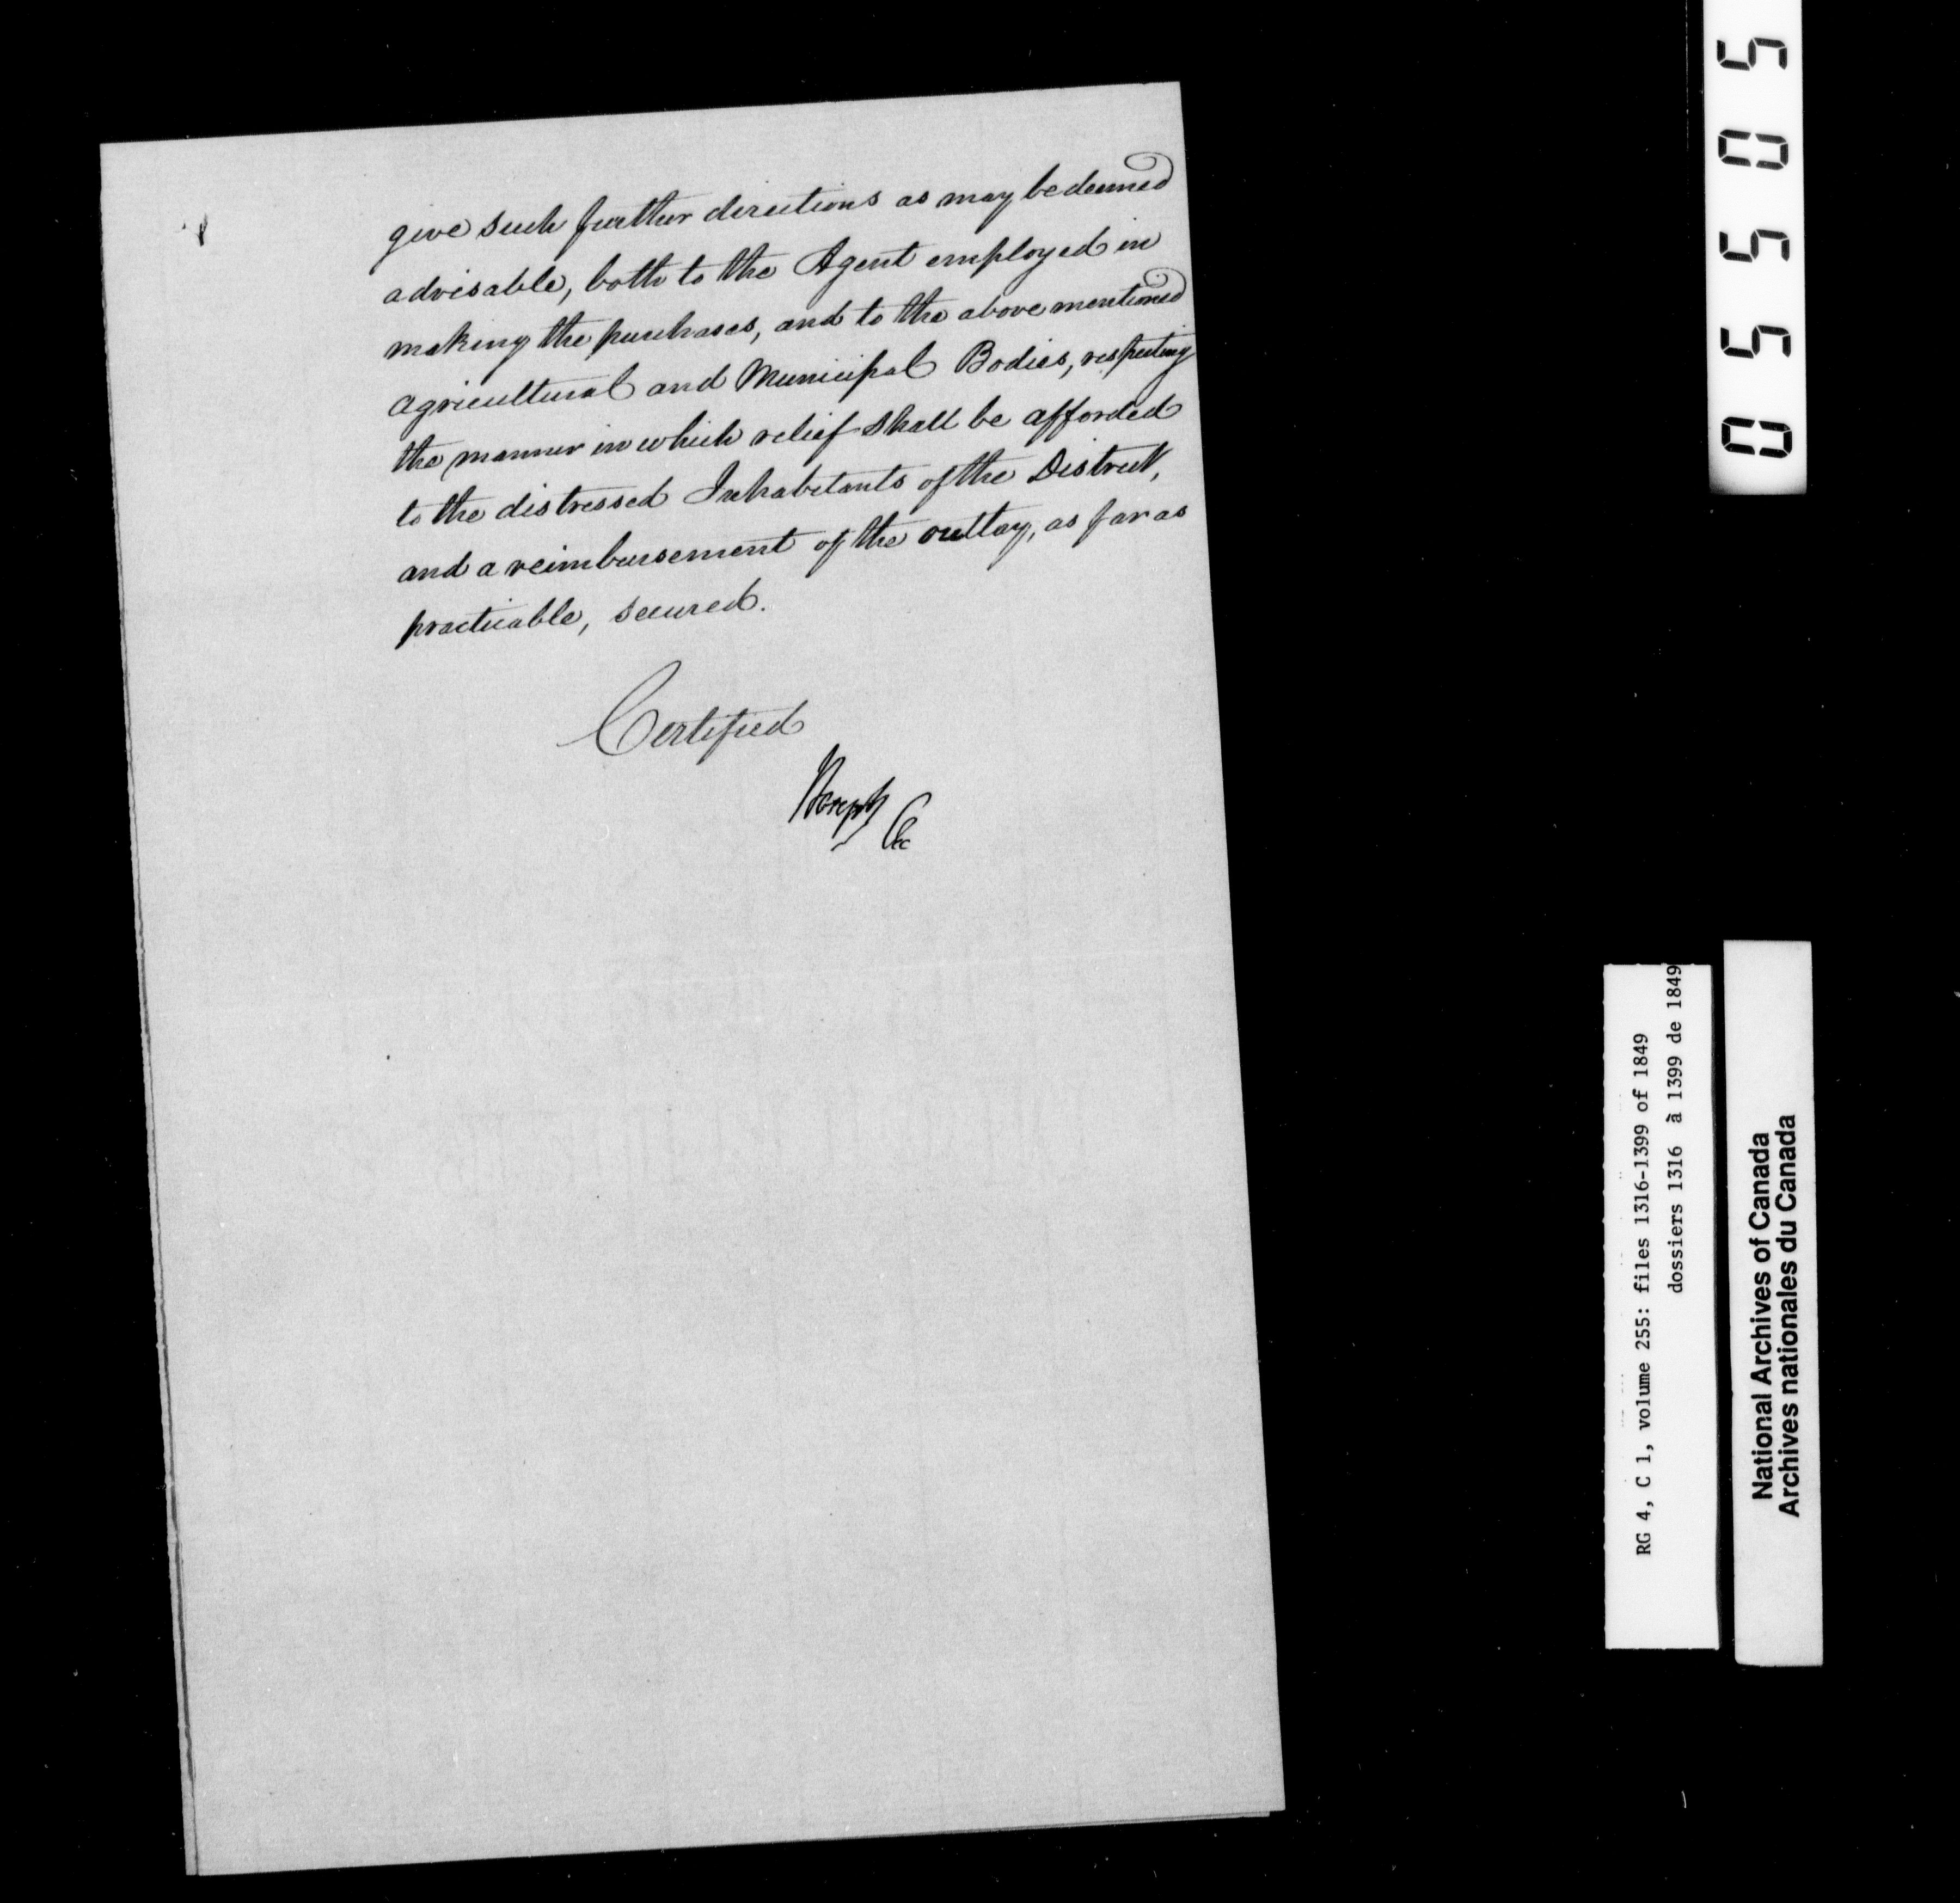 give such further directions as may be deemed
advisable, both to the Agent employed in
making the purchases, and to the above mentioned
Agricultural and Municipal Bodies, respecting
the manner in which relief shall be afforded
to the distressed Inhabitants of the District,
and a reimbursement of the outlay, as far as
practicable, secured.
Certified
05505
RG 4, C 1, volume 255: files 1316-1399 of 1849
dossiers 1316 à 1399 de 1849
National Archives of Canada
Archives nationales du Canada